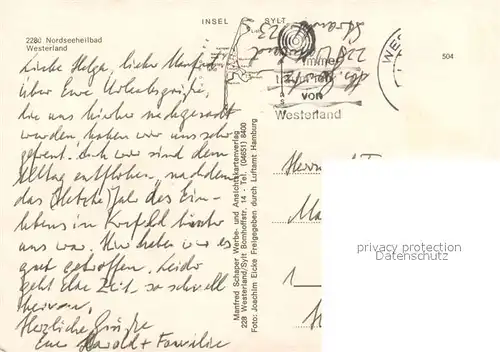 INSEL SYLT
2280 Nordseeheilbad
Westerland
504
Immer
von
Westerland
WES
Liebe Helga, lieber Manfred,
über Eure Urlaubsgrüße,
die uns hierher nachgesandt
wurden, haben wir uns sehr
gefreut. Auch wir sind dem
Alltag entflohen, nachdem
das (letzte) Jahr des Ein-
lebens in hinter
uns war. Hier haben wir es
gut getroffen. Leider
geht die Zeit so schnell
herum.
Herzliche Grüße
Eure Harold + Familie
Manfred Schaper Werbe- und Ansichtskartenverlag
228 Westerland/Sylt Bomhoffstr. 14 - Tel. (04651) 8400
Foto: Joachim Eicke Freigegeben durch Luftamt Hamburg
Ma
1
privacy protection
Datenschutz